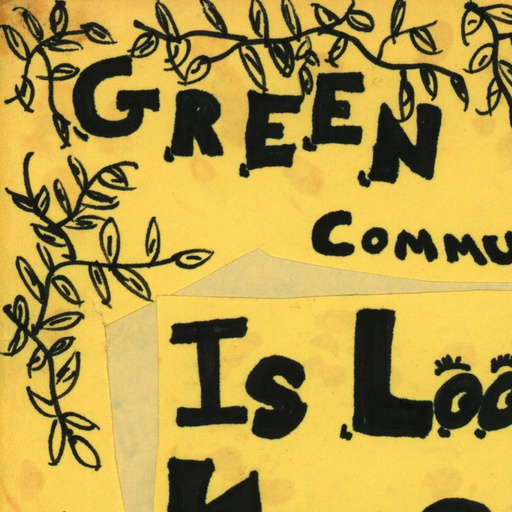 GREEN
COMMU
Is Loo